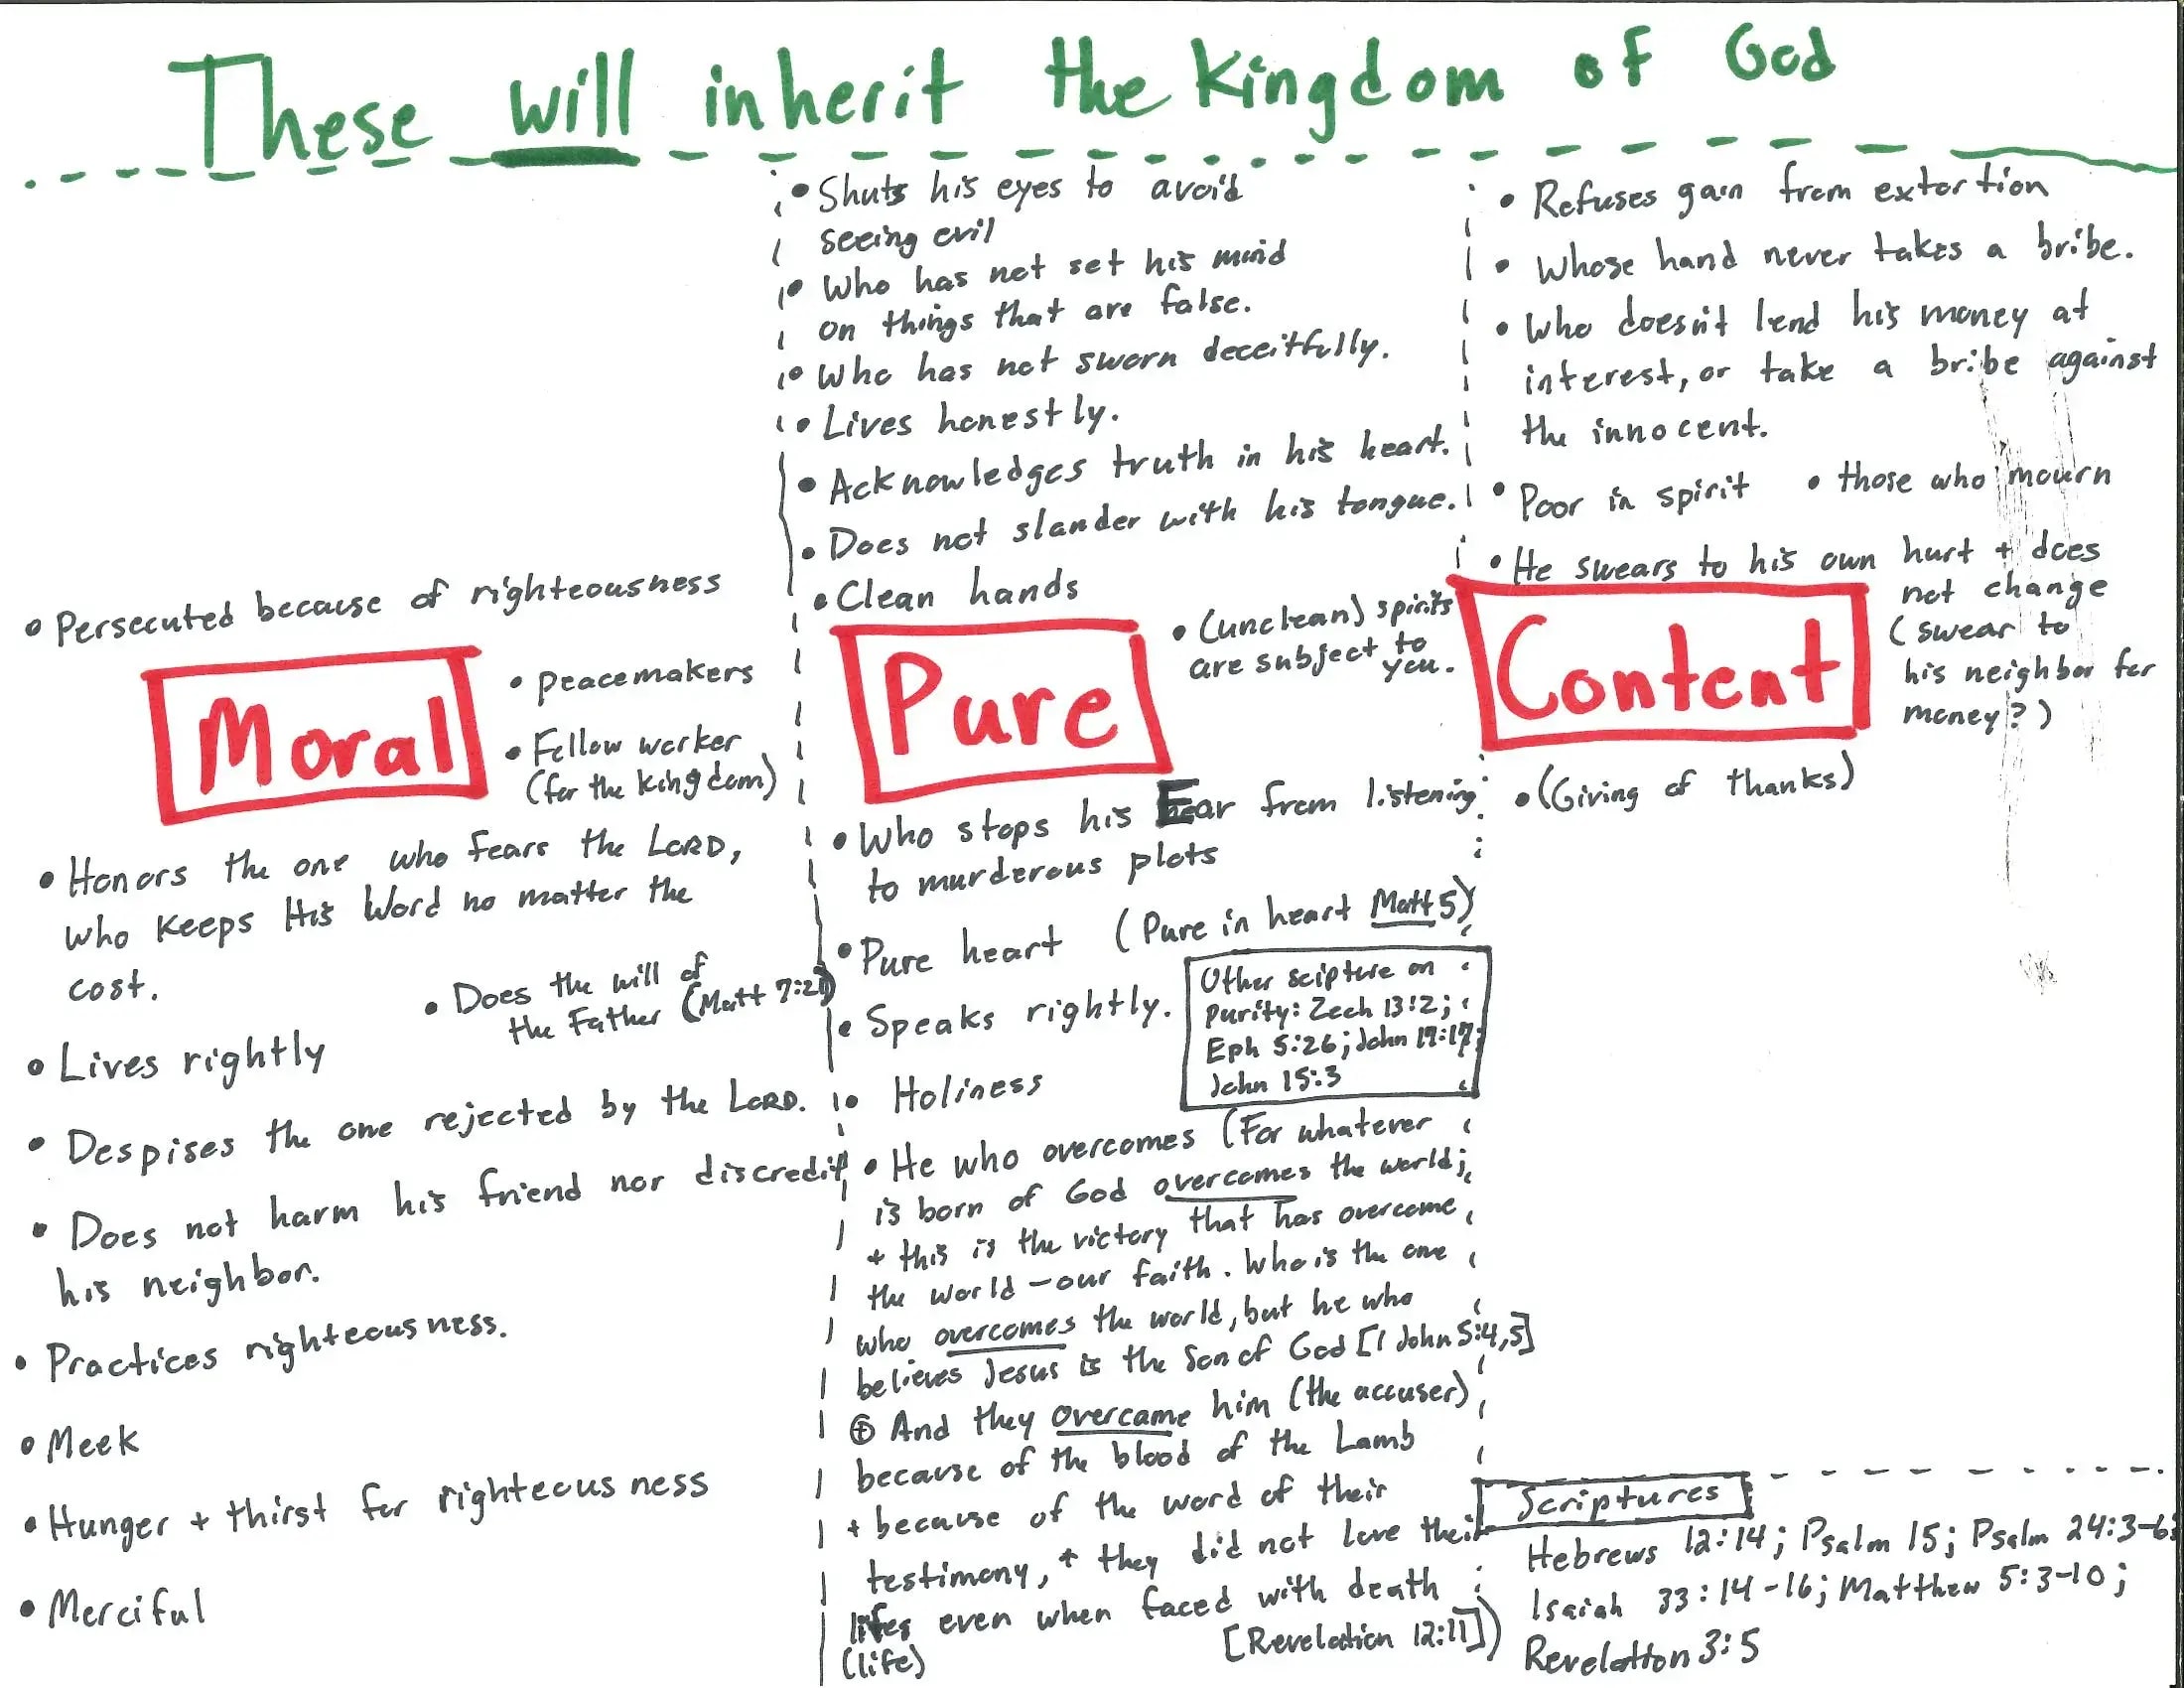 These will inherit the Kingdom of God
• Persecuted because of righteousness
Moral
• Peacemakers
• Fellow worker
(for the kingdom)
• Honors the one who fears the LORD,
who keeps His Word no matter the
cost.
• Does the will of
the Father (Matt 7:21)
• Lives rightly
• Despises the one rejected by the LORD.
• Does not harm his friend nor discredit
his neighbor.
• Practices righteousness.
• Meek
• Hunger + thirst for righteousness
• Merciful
• Shuts his eyes to avoid
seeing evil
• Who has not set his mind
on things that are false.
• Who has not sworn deceitfully.
• Lives honestly.
• Acknowledges truth in his heart.
• Does not slander with his tongue.
• Clean hands
Pure
• (unclean) spirits
are subject to
you.
• Who stops his Ear from listening
to murderous plots
• Pure heart (Pure in heart Matt 5)
• Speaks rightly.
Other scipture on
Purity: Zech 13:2;
Eph 5:26; John 17:17;
John 15:3
• Holiness
• He who overcomes (For whatever
is born of God overcomes the world;
+ this is the victory that has overcome
the world - our faith. Who is the one
who overcomes the world, but he who
believes Jesus is the Son of God [1 John 5:4,5]
⊕ And they overcame him (the accuser)
because of the blood of the Lamb
+ because of the word of their
testimony, + they did not love their
lifes even when faced with death
(life) [Revelation 12:11])
• Refuses gain from extortion
• Whose hand never takes a bribe.
• Who doesn't lend his money at
interest, or take a bribe against
the innocent.
• Poor in spirit • those who mourn
• He swears to his own hurt + does
not change
(swear to
his neighbor for
money?)
Content
• (Giving of thanks)
Scriptures
Hebrews 12:14; Psalm 15; Psalm 24:3-6;
Isaiah 33:14-16; Matthew 5:3-10;
Revelation 3:5